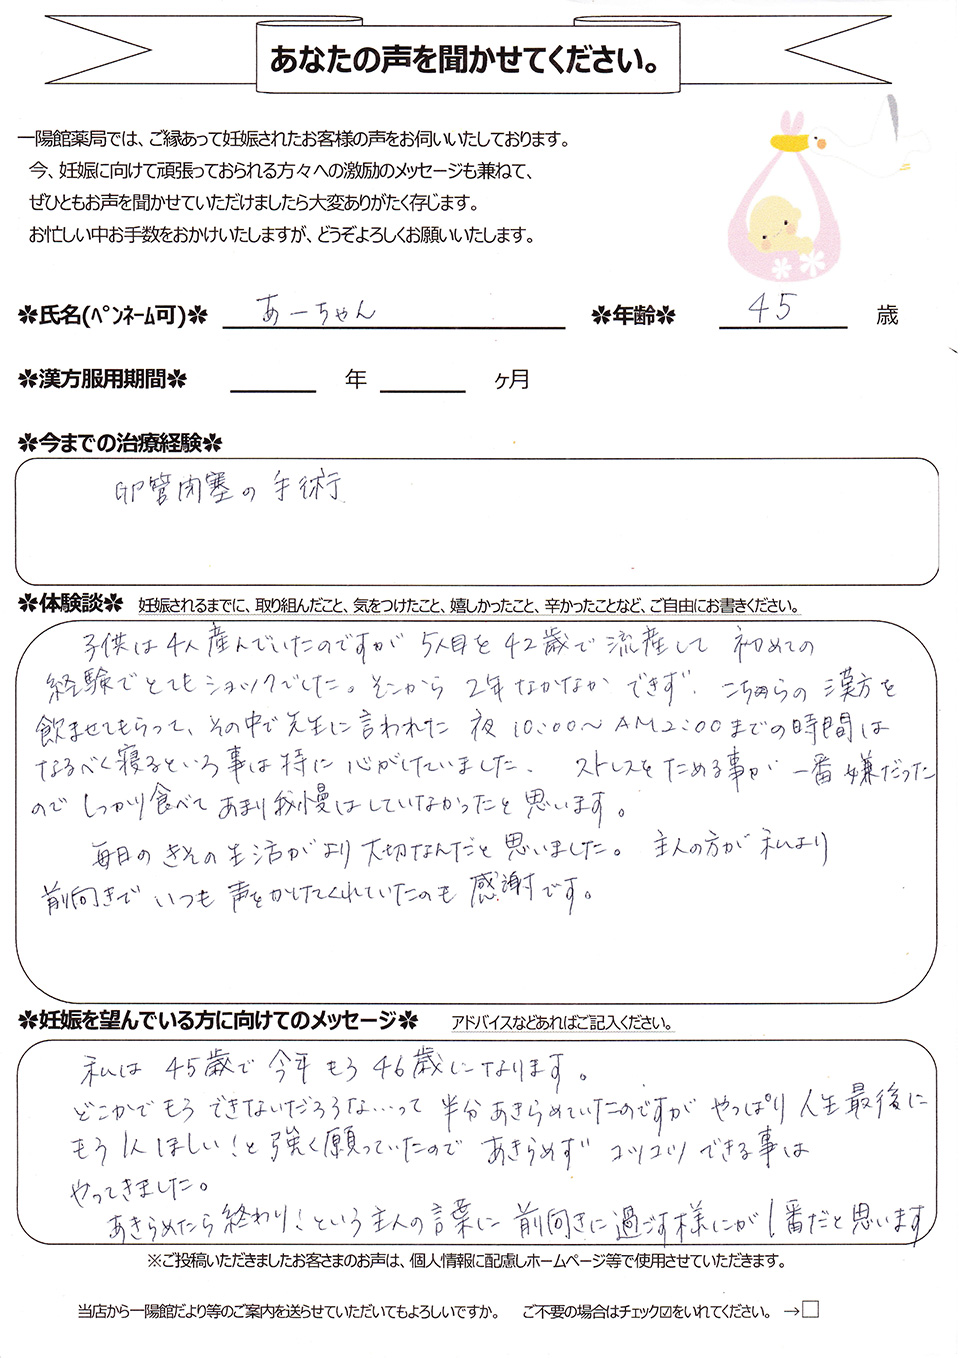 あなたの声を聞かせてください。
一陽館薬局では、ご縁あって妊娠されたお客様の声をお伺いいたしております。
今、妊娠に向けて頑張っておられる方々への激励のメッセージも兼ねて、
ぜひともお声を聞かせていただけましたら大変ありがたく存じます。
お忙しい中お手数をおかけいたしますが、どうぞよろしくお願いいたします。
✿氏名(ﾍﾟﾝﾈｰﾑ可)✿ あーちゃん ✿年齢✿ 45 歳
✿漢方服用期間✿ 年 ヶ月
✿今までの治療経験✿
卵管閉塞の手術
✿体験談✿ 妊娠されるまでに、取り組んだこと、気をつけたこと、嬉しかったこと、辛かったことなど、ご自由にお書きください。
子供は4人産んでいたのですが 5人目を42歳で流産して 初めての
経験でとてもショックでした。そこから 2年なかなか できず、こちらの 漢方を
飲ませてもらって、その中で先生に言われた 夜10:00〜AM2:00までの時間は
なるべく寝るという事は特に 心がけていました、 ストレスをためる事が 一番嫌だった
ので しっかり食べて あまり我慢はしていなかったと思います。
毎日の きその生活がより大切なんだと思いました。 主人の方が私より
前向きで いつも 声をかけてくれていたのも 感謝です。
✿妊娠を望んでいる方に向けてのメッセージ✿ アドバイスなどあればご記入ください。
私は 45歳で 今年もう 46歳になります。
どこかでもう できないだろうな…って 半分あきらめていたのですが やっぱり人生最後に
もう1人ほしい！と 強く願っていたので あきらめず コツコツ できる事は
やってきました。
あきらめたら終わり！という 主人の言葉に 前向きに過ごす様にが1番だと思います
※ご投稿いただきましたお客さまのお声は、個人情報に配慮しホームページ等で使用させていただきます。
当店から一陽館だより等のご案内を送らせていただいてもよろしいですか。 ご不要の場合はチェック☑をいれてください。 →□